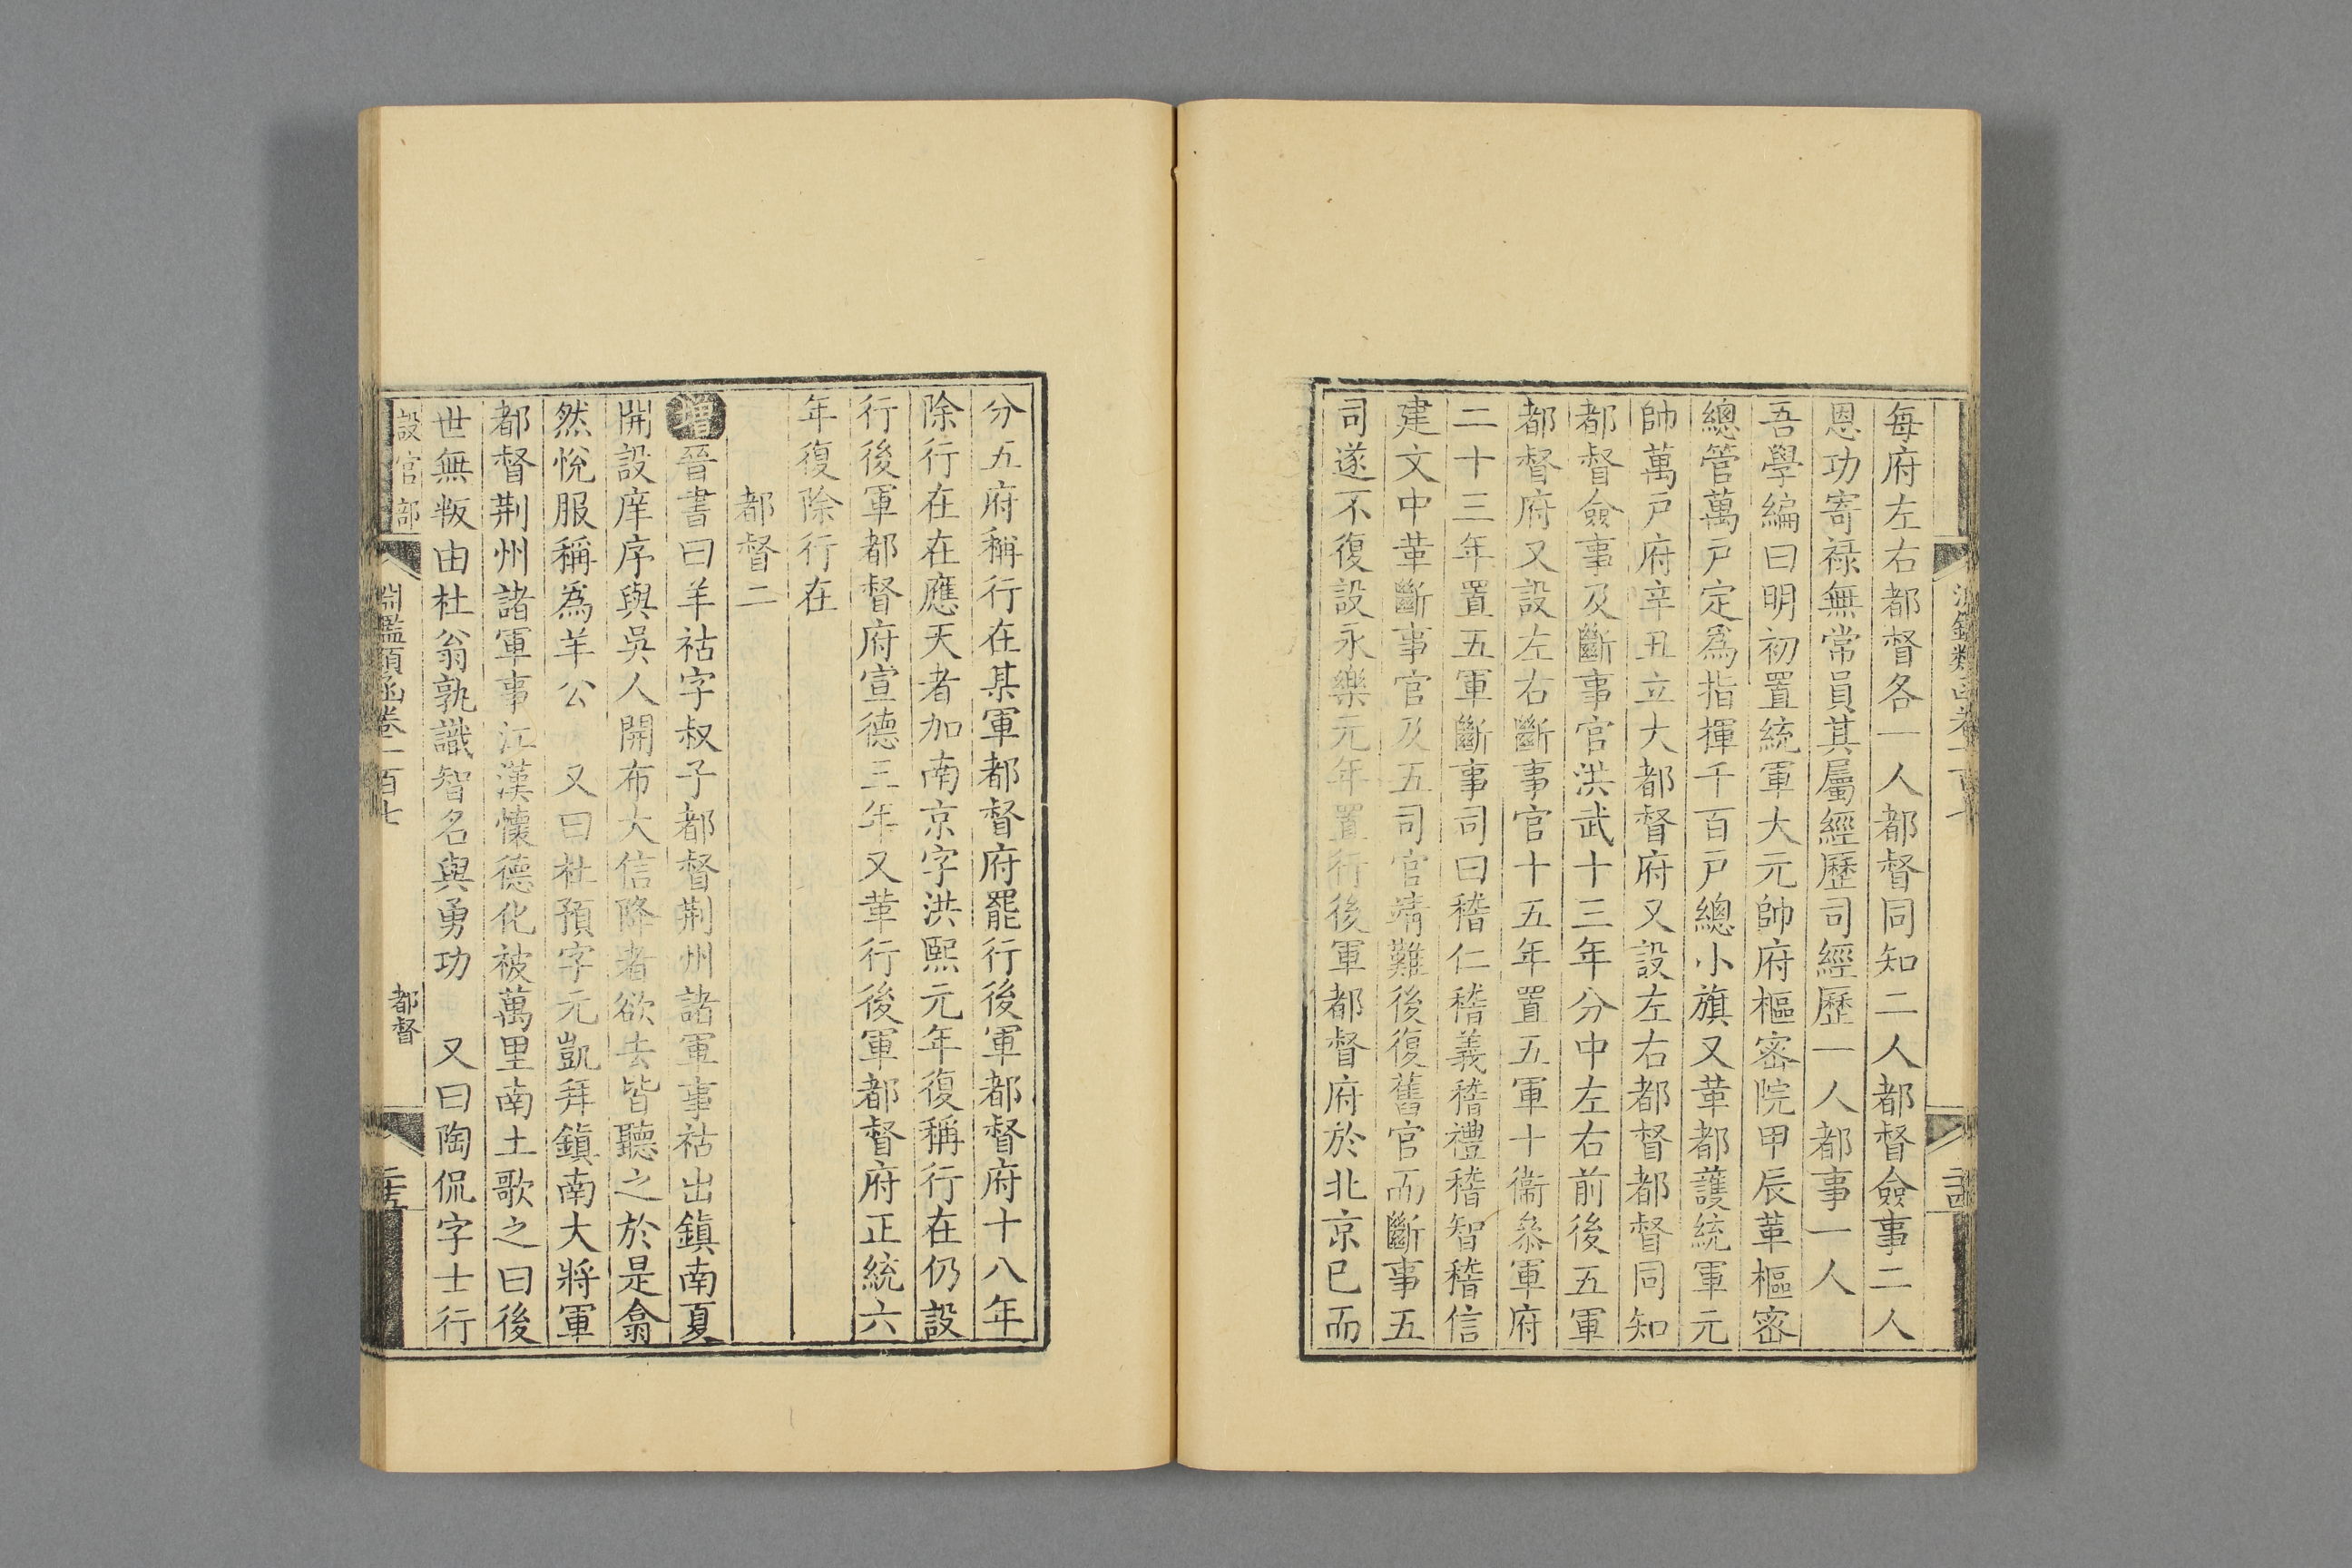 每府左右都督各一人都督同知二人都督僉事二人
恩功寄祿無常員其屬經歷司經歷一人都事一人
吾學編曰明初置統軍大元帥府樞密院甲辰革樞密
總管萬戸定爲指揮千百戸總小旗又革都護統軍元
帥萬戸府辛丑立大都督府又設左右都督都督同知
都督僉事及斷事官洪武十三年分中左右前後五軍
都督府又設左右斷事官十五年置五軍十衞叅軍府
二十三年置五軍斷事司曰稽仁稽義稽禮稽智稽信
建文中革斷事官及五司官靖難後復舊官而斷事五
司遂不復設永樂元年置行後軍都督府於北京已而
分五府稱行在某軍都督府罷行後軍都督府十八年
除行在在應天者加南京字洪熙元年復稱行在仍設
行後軍都督府宣德三年又革行後軍都督府正統六
年復除行在
都督二
增晉書曰羊祜字叔子都督荆州諸軍事祜出鎭南夏
開設庠序與吳人開布大信降者欲去皆聽之於是翕
然悅服稱爲羊公 又曰杜預字元凱拜鎭南大將軍
都督荆州諸軍事江漢懷德化被萬里南土歌之曰後
世無叛由杜翁孰識智名與勇功 又曰陶侃字士行
設官部 淵鑑類函卷一百七 都督 二十五